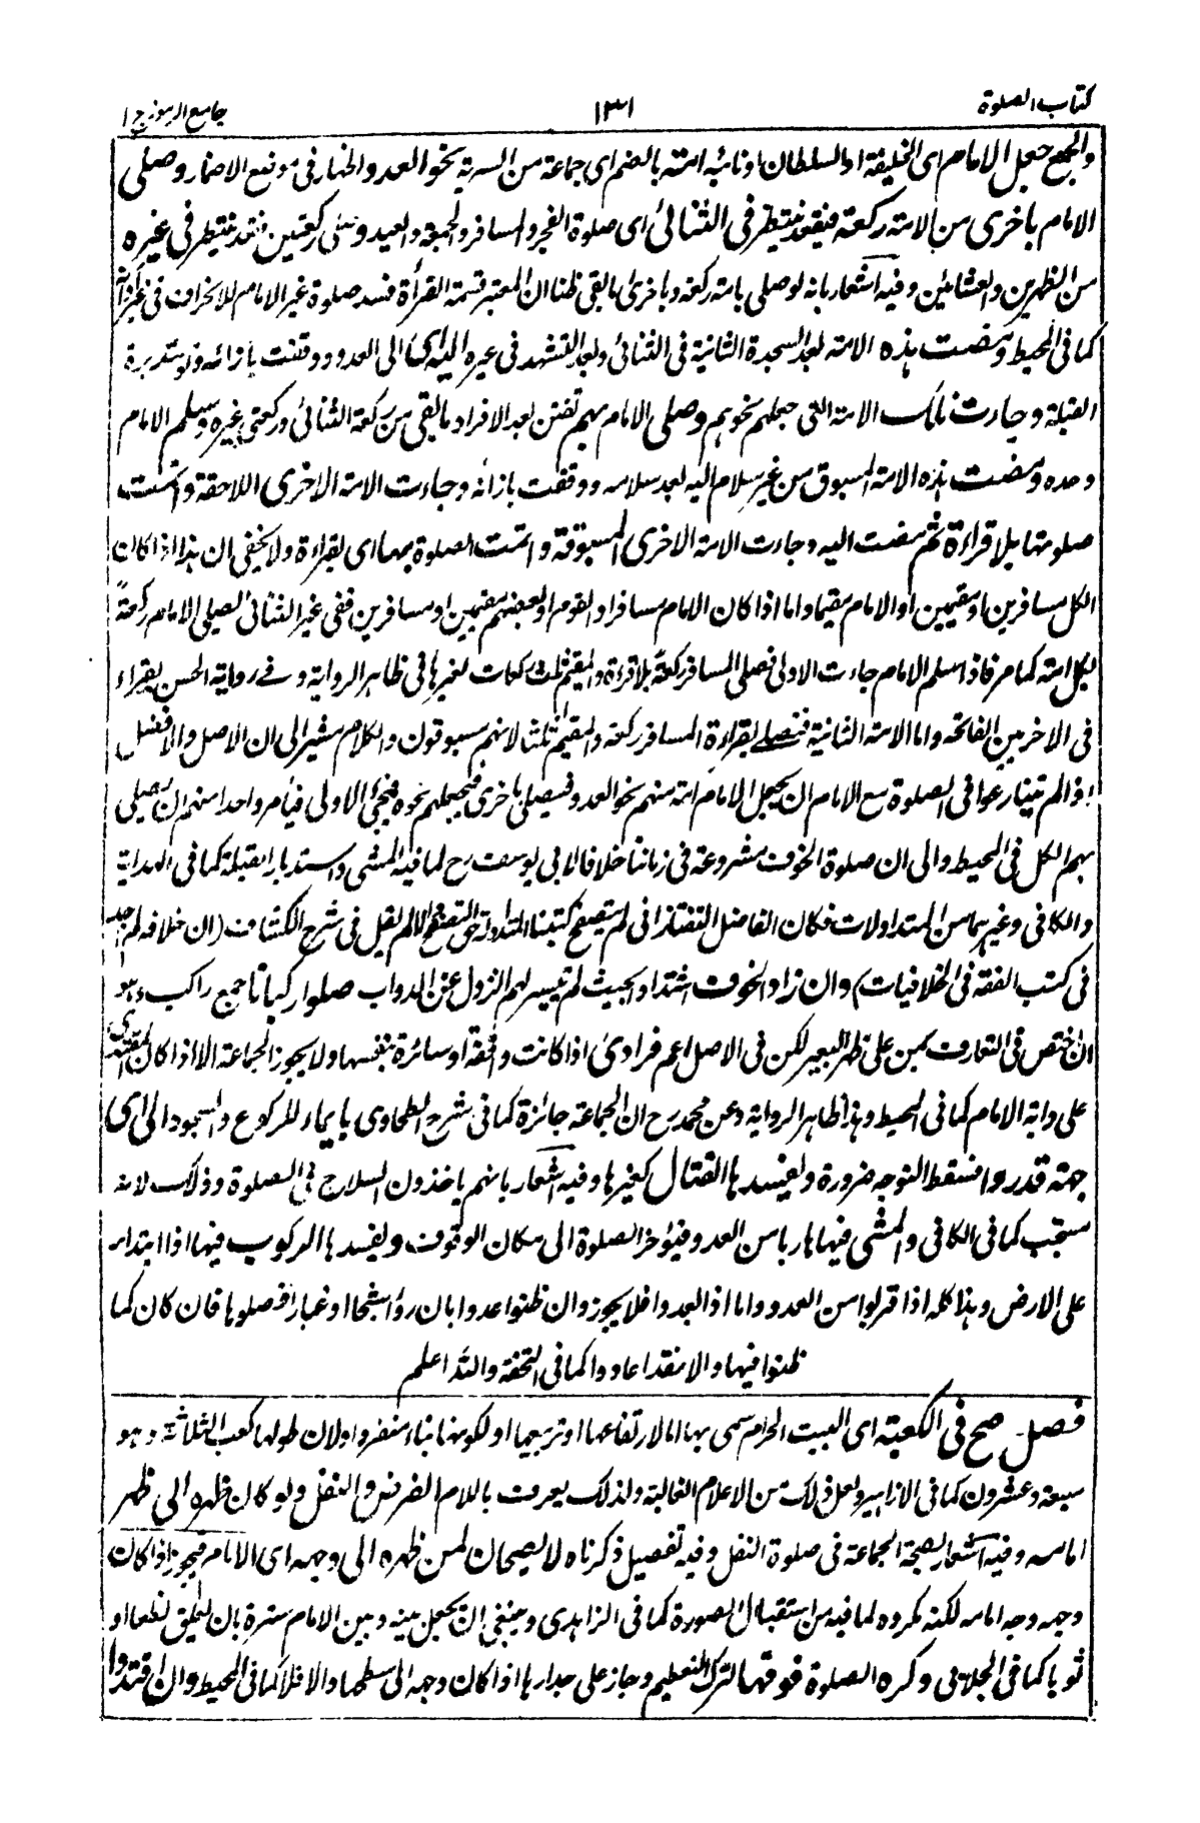 كتاب الصلوة
١٣١
جامع الرموز ج ١
والجمع جعل الامام اى الخليفة او السلطان او نائبه امة بالضم اى جماعة من السرية نحو العدو والخمار فى موضع الاضمار وصلى
الامام باخرى من الامة ركعة فيقعد فينتظر فى الثنائى اى صلوة الفجر والمسافر والجمعة والعيد ومثنى ركعتين فقد ينتظر فى غيره
من الظهرين والعشائين وفيه اشعار بانه لو صلى بامة ركعة وباخرى ما بقى ظنا ان المعتبر قسمة القرأة فسد صلوة غير الامام للانحراف فى غير اوانه
كما فى المحيط ومضت هذه الامة بعد السجدة الثانية فى الثنائى وبعد التشهد فى غيره اليه اى الى العدو ووقفت بازائه ولو مستدبرة
القبلة وجاءت تلك الامة التى جعلهم نحوهم وصلى الامام بهم تفنن بعد الافراد ما بقى من ركعة الثنائى وركعتى غيره وسلم الامام
وحده ومضت هذه الامة المسبوق من غير سلام اليه بعد سلامه ووقفت بازائه وجاءت الامة الاخرى اللاحقة واتمت
صلوتها بلا قراءة ثم مضت اليه وجاءت الامة الاخرى المسبوقة واتمت الصلوة بها اى بقراءة ولا يخفى ان هذا اذا كان
الكل مسافرين او مقيمين او الامام مقيما واما اذا كان الامام مسافرا والقوم او بعضهم مقيمين او مسافرين ففى غير الثنائى يصلى الامام ركعة
بكل امة كما مر فاذا سلم الامام جاءت الاولى فصلى المسافر ركعة بلا قراءة والمقيم ثلث ركعات بغيرها فى ظاهر الرواية وفى رواية الحسن يقراء
فى الاخريين الفاتحة واما الامة الثانية فتصلى بقراءة المسافر ركعة والمقيم ثلثا لانهم مسبوقون والكلام مشير الى ان الاصل والافضل
اذا لم يتنازعوا فى الصلوة مع الامام ان يجعل الامام امة منهم نحو العدو فيصلى باخرى فيجعلهم نحوه فيجئ الاولى فيأمر واحدا منهم ان يصلى
بهم الكل فى المحيط والى ان صلوة الخوف مشروعة فى زماننا خلافا لابى يوسف رح لما فيه المشى واستدبار القبلة كما فى الهداية
والكافى وغيرهما من المتداولات فكان الفاضل التفتازانى لم يتصفح كتبنا المتداولة حق التصفح والا لم يقل فى شرح الكشاف (ان خلافه لم اجد
فى كتب الفقه فى الخلافيات) وان زاد الخوف اشتداد بحيث لم يتيسر لهم النزول عن الدواب صلوا ركبانا جمع راكب وهو
ان اختص فى التعارف بمن على ظهر البعير لكن فى الاصل اعم فرادى اذا كانت واقفة او سائرة بنفسها ولا يجوز الجماعة الا اذا كان المقتدى
على دابة الامام كما فى المحيط وهذا ظاهر الرواية وعن محمد رح ان الجماعة جائزة كما فى شرح الطحاوى بايماء للركوع والسجود الى اى
جهة قدروا فسقط التوجه ضرورة ويفسدها القتال كغيرها وفيه اشعار بانهم ياخذون السلاح فى الصلوة وذلك لانه
مستحب كما فى الكافى والمشى فيها هاربا من العدو فيؤخر الصلوة الى مكان الوقوف ويفسدها الركوب فيها اذا ابتداء
على الارض وهذا كله اذا قربوا من العدو واما اذا بعدوا فلا يجوز وان ظنوا عدوا بان رؤا شبحا او غبارا فصلوها فان كان كما
ظنوا فيها والا فقد اعادوا كما فى التحفة والله اعلم
فصل صح فى الكعبة اى البيت الحرام سمى بها اما لارتفاعها او تربيعها او لكونها بناء منفردا ولان طولها كعب الثلاثة وهو
سبعة وعشرون كما فى الازاهير ولعل ذلك من الاعلام الغالبة ولذلك يعرف باللام الفرض والنفل ولو كان ظهره الى ظهر
امامه وفيه اشعار بصحة الجماعة فى صلوة النفل وفيه تفصيل ذكرناه لا يصحان لمن ظهره الى وجهه اى الامام فيجوز اذا كان
وجهه وجه امامه لكنه مكروه لما فيه من استقبال الصورة كما فى الزاهدى وينبغى ان يجعل بينه وبين الامام سترة بان يعلق نطعا او
ثوبا كما فى الجلابى وكره الصلوة فوقها لترك التعظيم وجاز على جدارها اذا كان وجهه الى سطحها والا فلا كما فى المحيط وان اقتدوا